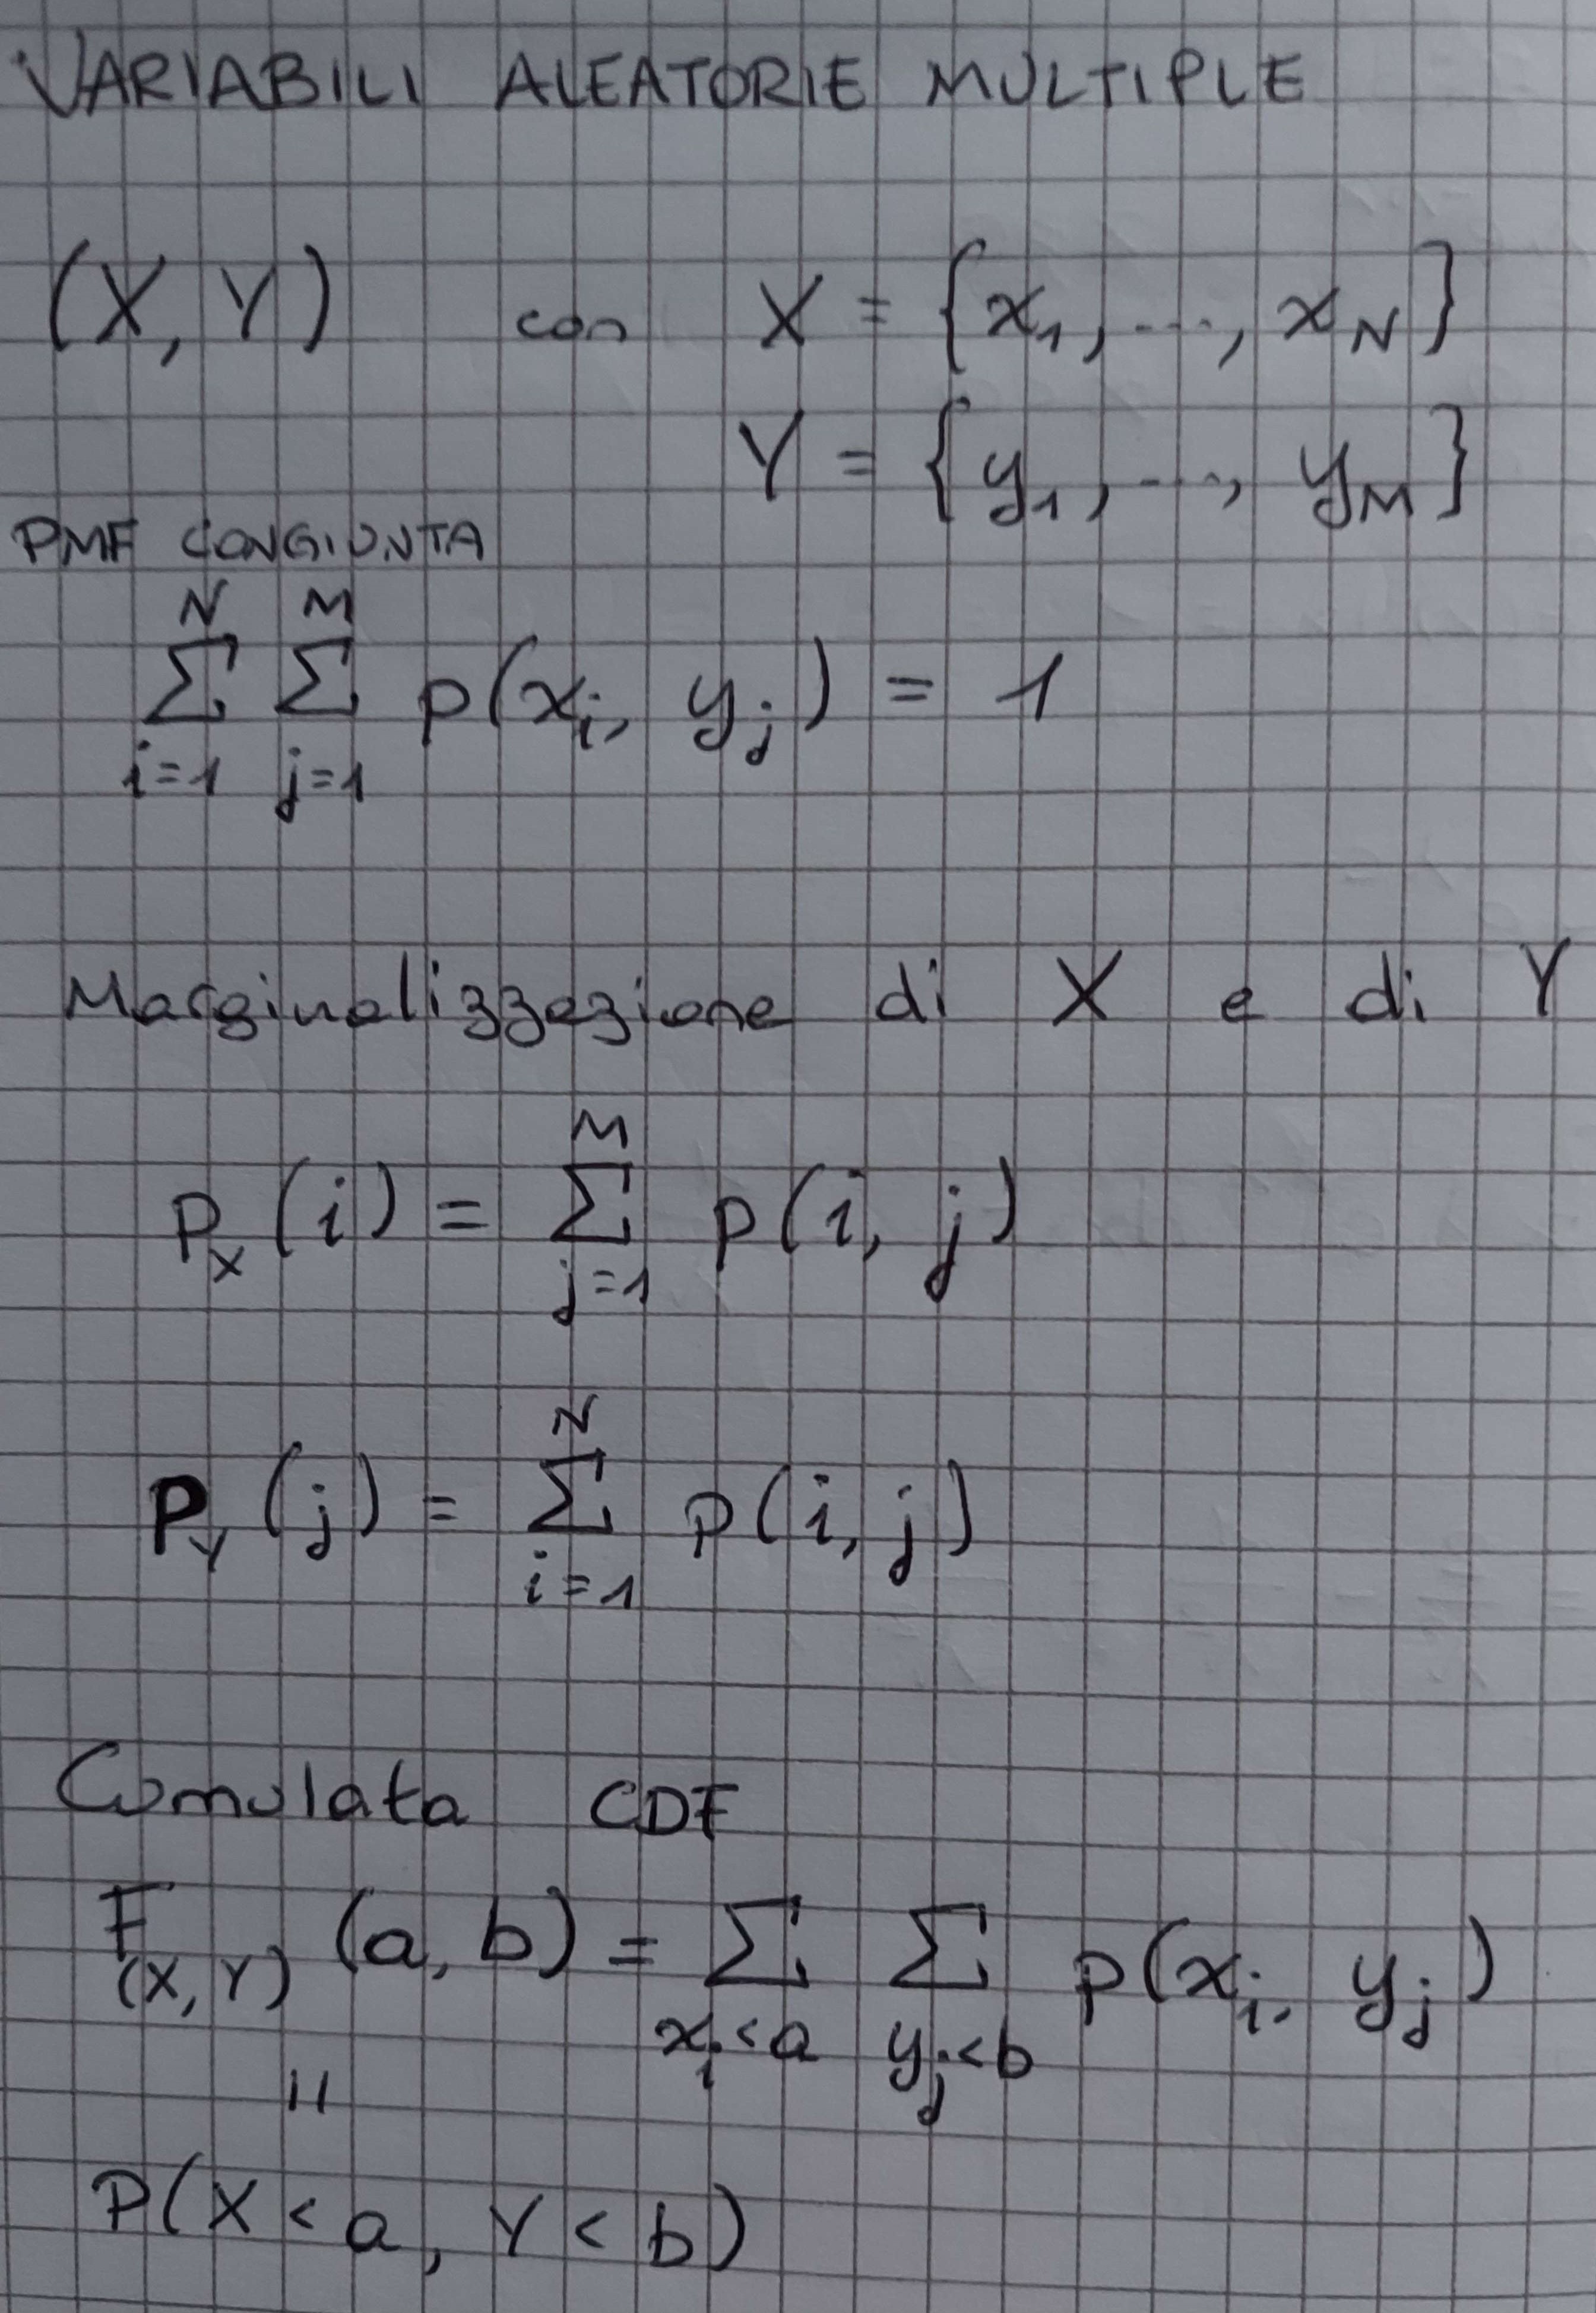 VARIABILI ALEATORIE MULTIPLE
(X, Y) con X = {x₁, ..., x_N}
Y = {y₁, ..., y_M}
PMF CONGIUNTA
∑_{i=1}^{N} ∑_{j=1}^{M} p(x_i, y_j) = 1
Marginalizzazione di X e di Y
P_X (i) = ∑_{j=1}^{M} p(i, j)
P_Y (j) = ∑_{i=1}^{N} p(i, j)
Comulata CDF
F_{(X, Y)} (a, b) = ∑_{x_i < a} ∑_{y_j < b} p(x_i, y_j)
=
P(X < a, Y < b)